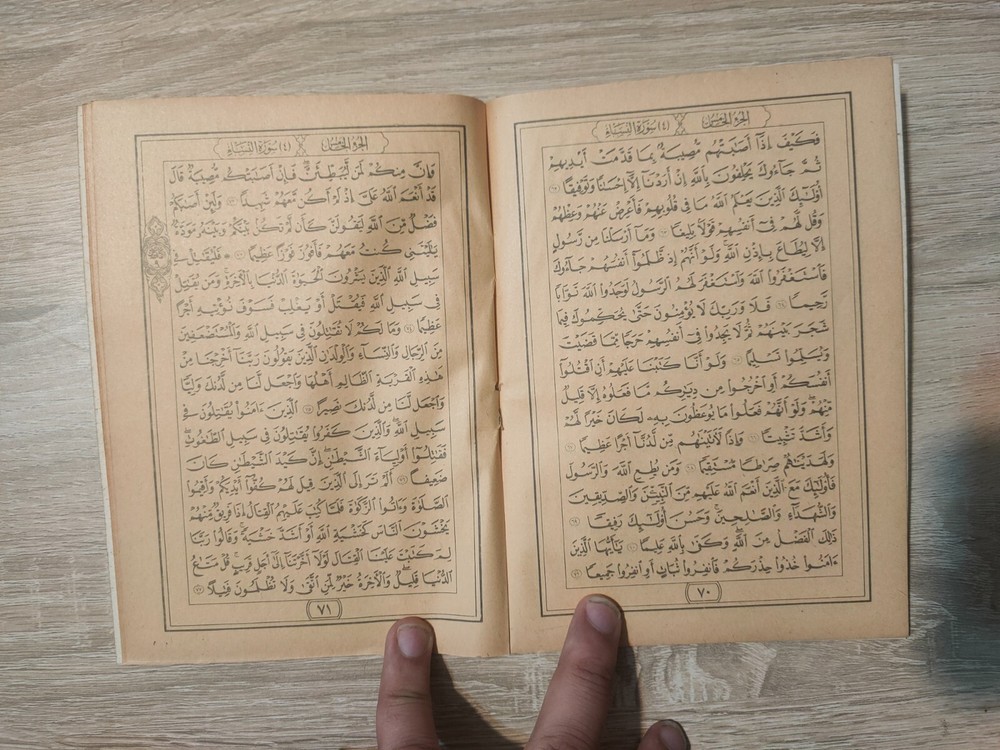 الجزء الخامس (٤) سورة النساء
فَكَيْفَ إِذَآ أَصَٰبَتْهُم مُّصِيبَةٌۢ بِمَا قَدَّمَتْ أَيْدِيهِمْ
ثُمَّ جَآءُوكَ يَحْلِفُونَ بِٱللَّهِ إِنْ أَرَدْنَآ إِلَّآ إِحْسَٰنًا وَتَوْفِيقًا ٦٢
أُو۟لَٰٓئِكَ ٱلَّذِينَ يَعْلَمُ ٱللَّهُ مَا فِى قُلُوبِهِمْ فَأَعْرِضْ عَنْهُمْ وَعِظْهُمْ
وَقُل لَّهُمْ فِىٓ أَنفُسِهِمْ قَوْلًۢا بَلِيغًا ٦٣ وَمَآ أَرْسَلْنَا مِن رَّسُولٍ
إِلَّا لِيُطَاعَ بِإِذْنِ ٱللَّهِ وَلَوْ أَنَّهُمْ إِذ ظَّلَمُوٓا۟ أَنفُسَهُمْ جَآءُوكَ
فَٱسْتَغْفَرُوا۟ ٱللَّهَ وَٱسْتَغْفَرَ لَهُمُ ٱلرَّسُولُ لَوَجَدُوا۟ ٱللَّهَ تَوَّابًا
رَّحِيمًا ٦٤ فَلَا وَرَبِّكَ لَا يُؤْمِنُونَ حَتَّىٰ يُحَكِّمُوكَ فِيمَا
شَجَرَ بَيْنَهُمْ ثُمَّ لَا يَجِدُوا۟ فِىٓ أَنفُسِهِمْ حَرَجًا مِّمَّا قَضَيْتَ
وَيُسَلِّمُوا۟ تَسْلِيمًا ٦٥ وَلَوْ أَنَّا كَتَبْنَا عَلَيْهِمْ أَنِ ٱقْتُلُوٓا۟
أَنفُسَكُمْ أَوِ ٱخْرُجُوا۟ مِن دِيَٰرِكُم مَّا فَعَلُوهُ إِلَّا قَلِيلٌ
مِّنْهُمْ وَلَوْ أَنَّهُمْ فَعَلُوا۟ مَا يُوعَظُونَ بِهِۦ لَكَانَ خَيْرًا لَّهُمْ
وَأَشَدَّ تَثْبِيتًا ٦٦ وَإِذًا لَّءَاتَيْنَٰهُم مِّن لَّدُنَّآ أَجْرًا عَظِيمًا ٦٧
وَلَهَدَيْنَٰهُمْ صِرَٰطًا مُّسْتَقِيمًا ٦٨ وَمَن يُطِعِ ٱللَّهَ وَٱلرَّسُولَ
فَأُو۟لَٰٓئِكَ مَعَ ٱلَّذِينَ أَنْعَمَ ٱللَّهُ عَلَيْهِم مِّنَ ٱلنَّبِيِّـۧنَ وَٱلصِّدِّيقِينَ
وَٱلشُّهَدَآءِ وَٱلصَّٰلِحِينَ وَحَسُنَ أُو۟لَٰٓئِكَ رَفِيقًا ٦٩
ذَٰلِكَ ٱلْفَضْلُ مِنَ ٱللَّهِ وَكَفَىٰ بِٱللَّهِ عَلِيمًا ٧٠ يَٰٓأَيُّهَا ٱلَّذِينَ
ءَامَنُوا۟ خُذُوا۟ حِذْرَكُمْ فَٱنفِرُوا۟ ثُبَاتٍ أَوِ ٱنفِرُوا۟ جَمِيعًا ٧١
٧٠
الجزء الخامس (٤) سورة النساء
وَإِنَّ مِنكُمْ لَمَن لَّيُبَطِّئَنَّ فَإِنْ أَصَٰبَتْكُم مُّصِيبَةٌ قَالَ
قَدْ أَنْعَمَ ٱللَّهُ عَلَىَّ إِذْ لَمْ أَكُن مَّعَهُمْ شَهِيدًا ٧٢ وَلَئِنْ أَصَٰبَكُمْ
فَضْلٌ مِّنَ ٱللَّهِ لَيَقُولَنَّ كَأَن لَّمْ تَكُنۢ بَيْنَكُمْ وَبَيْنَهُۥ مَوَدَّةٌ
يَٰلَيْتَنِى كُنتُ مَعَهُمْ فَأَفُوزَ فَوْزًا عَظِيمًا ٧٣ * فَلْيُقَٰتِلْ فِى
سَبِيلِ ٱللَّهِ ٱلَّذِينَ يَشْرُونَ ٱلْحَيَوٰةَ ٱلدُّنْيَا بِٱلْءَاخِرَةِ وَمَن يُقَٰتِلْ
فِى سَبِيلِ ٱللَّهِ فَيُقْتَلْ أَوْ يَغْلِبْ فَسَوْفَ نُؤْتِيهِ أَجْرًا
عَظِيمًا ٧٤ وَمَا لَكُمْ لَا تُقَٰتِلُونَ فِى سَبِيلِ ٱللَّهِ وَٱلْمُسْتَضْعَفِينَ
مِنَ ٱلرِّجَالِ وَٱلنِّسَآءِ وَٱلْوِلْدَٰنِ ٱلَّذِينَ يَقُولُونَ رَبَّنَآ أَخْرِجْنَا مِنْ
هَٰذِهِ ٱلْقَرْيَةِ ٱلظَّالِمِ أَهْلُهَا وَٱجْعَل لَّنَا مِن لَّدُنكَ وَلِيًّا
وَٱجْعَل لَّنَا مِن لَّدُنكَ نَصِيرًا ٧٥ ٱلَّذِينَ ءَامَنُوا۟ يُقَٰتِلُونَ فِى
سَبِيلِ ٱللَّهِ وَٱلَّذِينَ كَفَرُوا۟ يُقَٰتِلُونَ فِى سَبِيلِ ٱلطَّٰغُوتِ
فَقَٰتِلُوٓا۟ أَوْلِيَآءَ ٱلشَّيْطَٰنِ إِنَّ كَيْدَ ٱلشَّيْطَٰنِ كَانَ
ضَعِيفًا ٧٦ أَلَمْ تَرَ إِلَى ٱلَّذِينَ قِيلَ لَهُمْ كُفُّوٓا۟ أَيْدِيَكُمْ وَأَقِيمُوا۟
ٱلصَّلَوٰةَ وَءَاتُوا۟ ٱلزَّكَوٰةَ فَلَمَّا كُتِبَ عَلَيْهِمُ ٱلْقِتَالُ إِذَا فَرِيقٌ مِّنْهُمْ
يَخْشَوْنَ ٱلنَّاسَ كَخَشْيَةِ ٱللَّهِ أَوْ أَشَدَّ خَشْيَةً وَقَالُوا۟ رَبَّنَا
لِمَ كَتَبْتَ عَلَيْنَا ٱلْقِتَالَ لَوْلَآ أَخَّرْتَنَآ إِلَىٰٓ أَجَلٍ قَرِيبٍ قُلْ مَتَٰعُ
ٱلدُّنْيَا قَلِيلٌ وَٱلْءَاخِرَةُ خَيْرٌ لِّمَنِ ٱتَّقَىٰ وَلَا تُظْلَمُونَ فَتِيلًا ٧٧
٧١